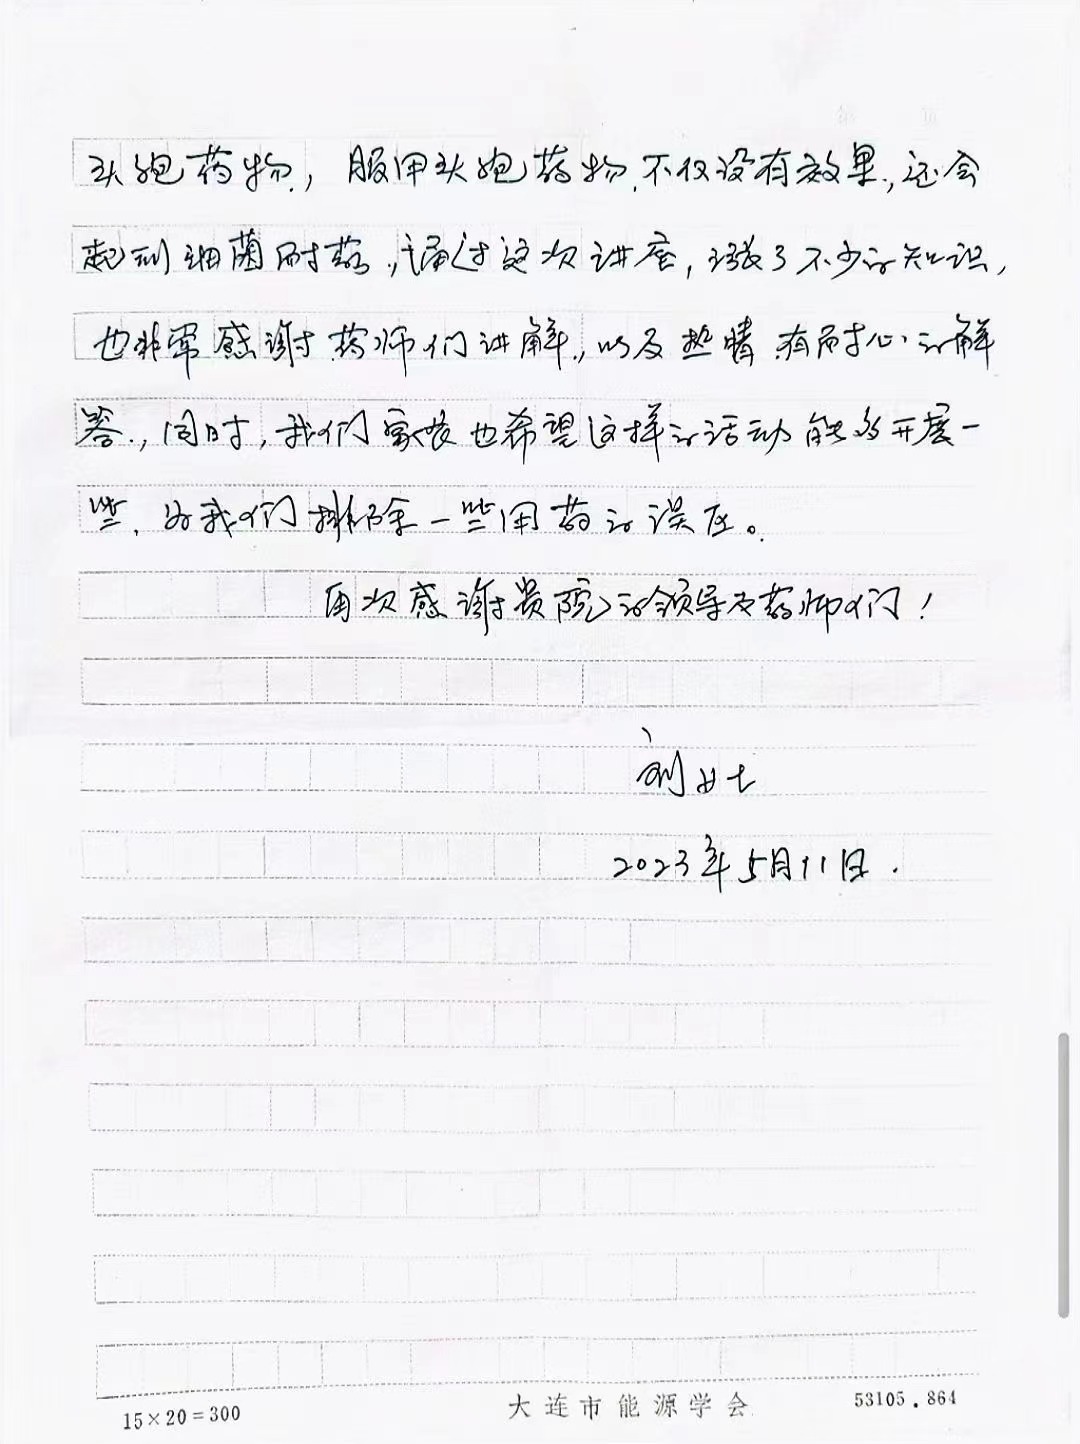 头孢药物，服用头孢药物，不仅没有效果，还会
起到细菌耐药，通过这次讲座，涨了不少的知识，
也非常感谢药师们讲解，以及热情有耐心的解
答，同时，我们家长也希望这样的活动能多开展一
些，为我们排除一些用药的误区。
再次感谢贵院的领导及药师们！
刘女士
2023年5月11日.
15×20=300
大连市能源学会
53105.864